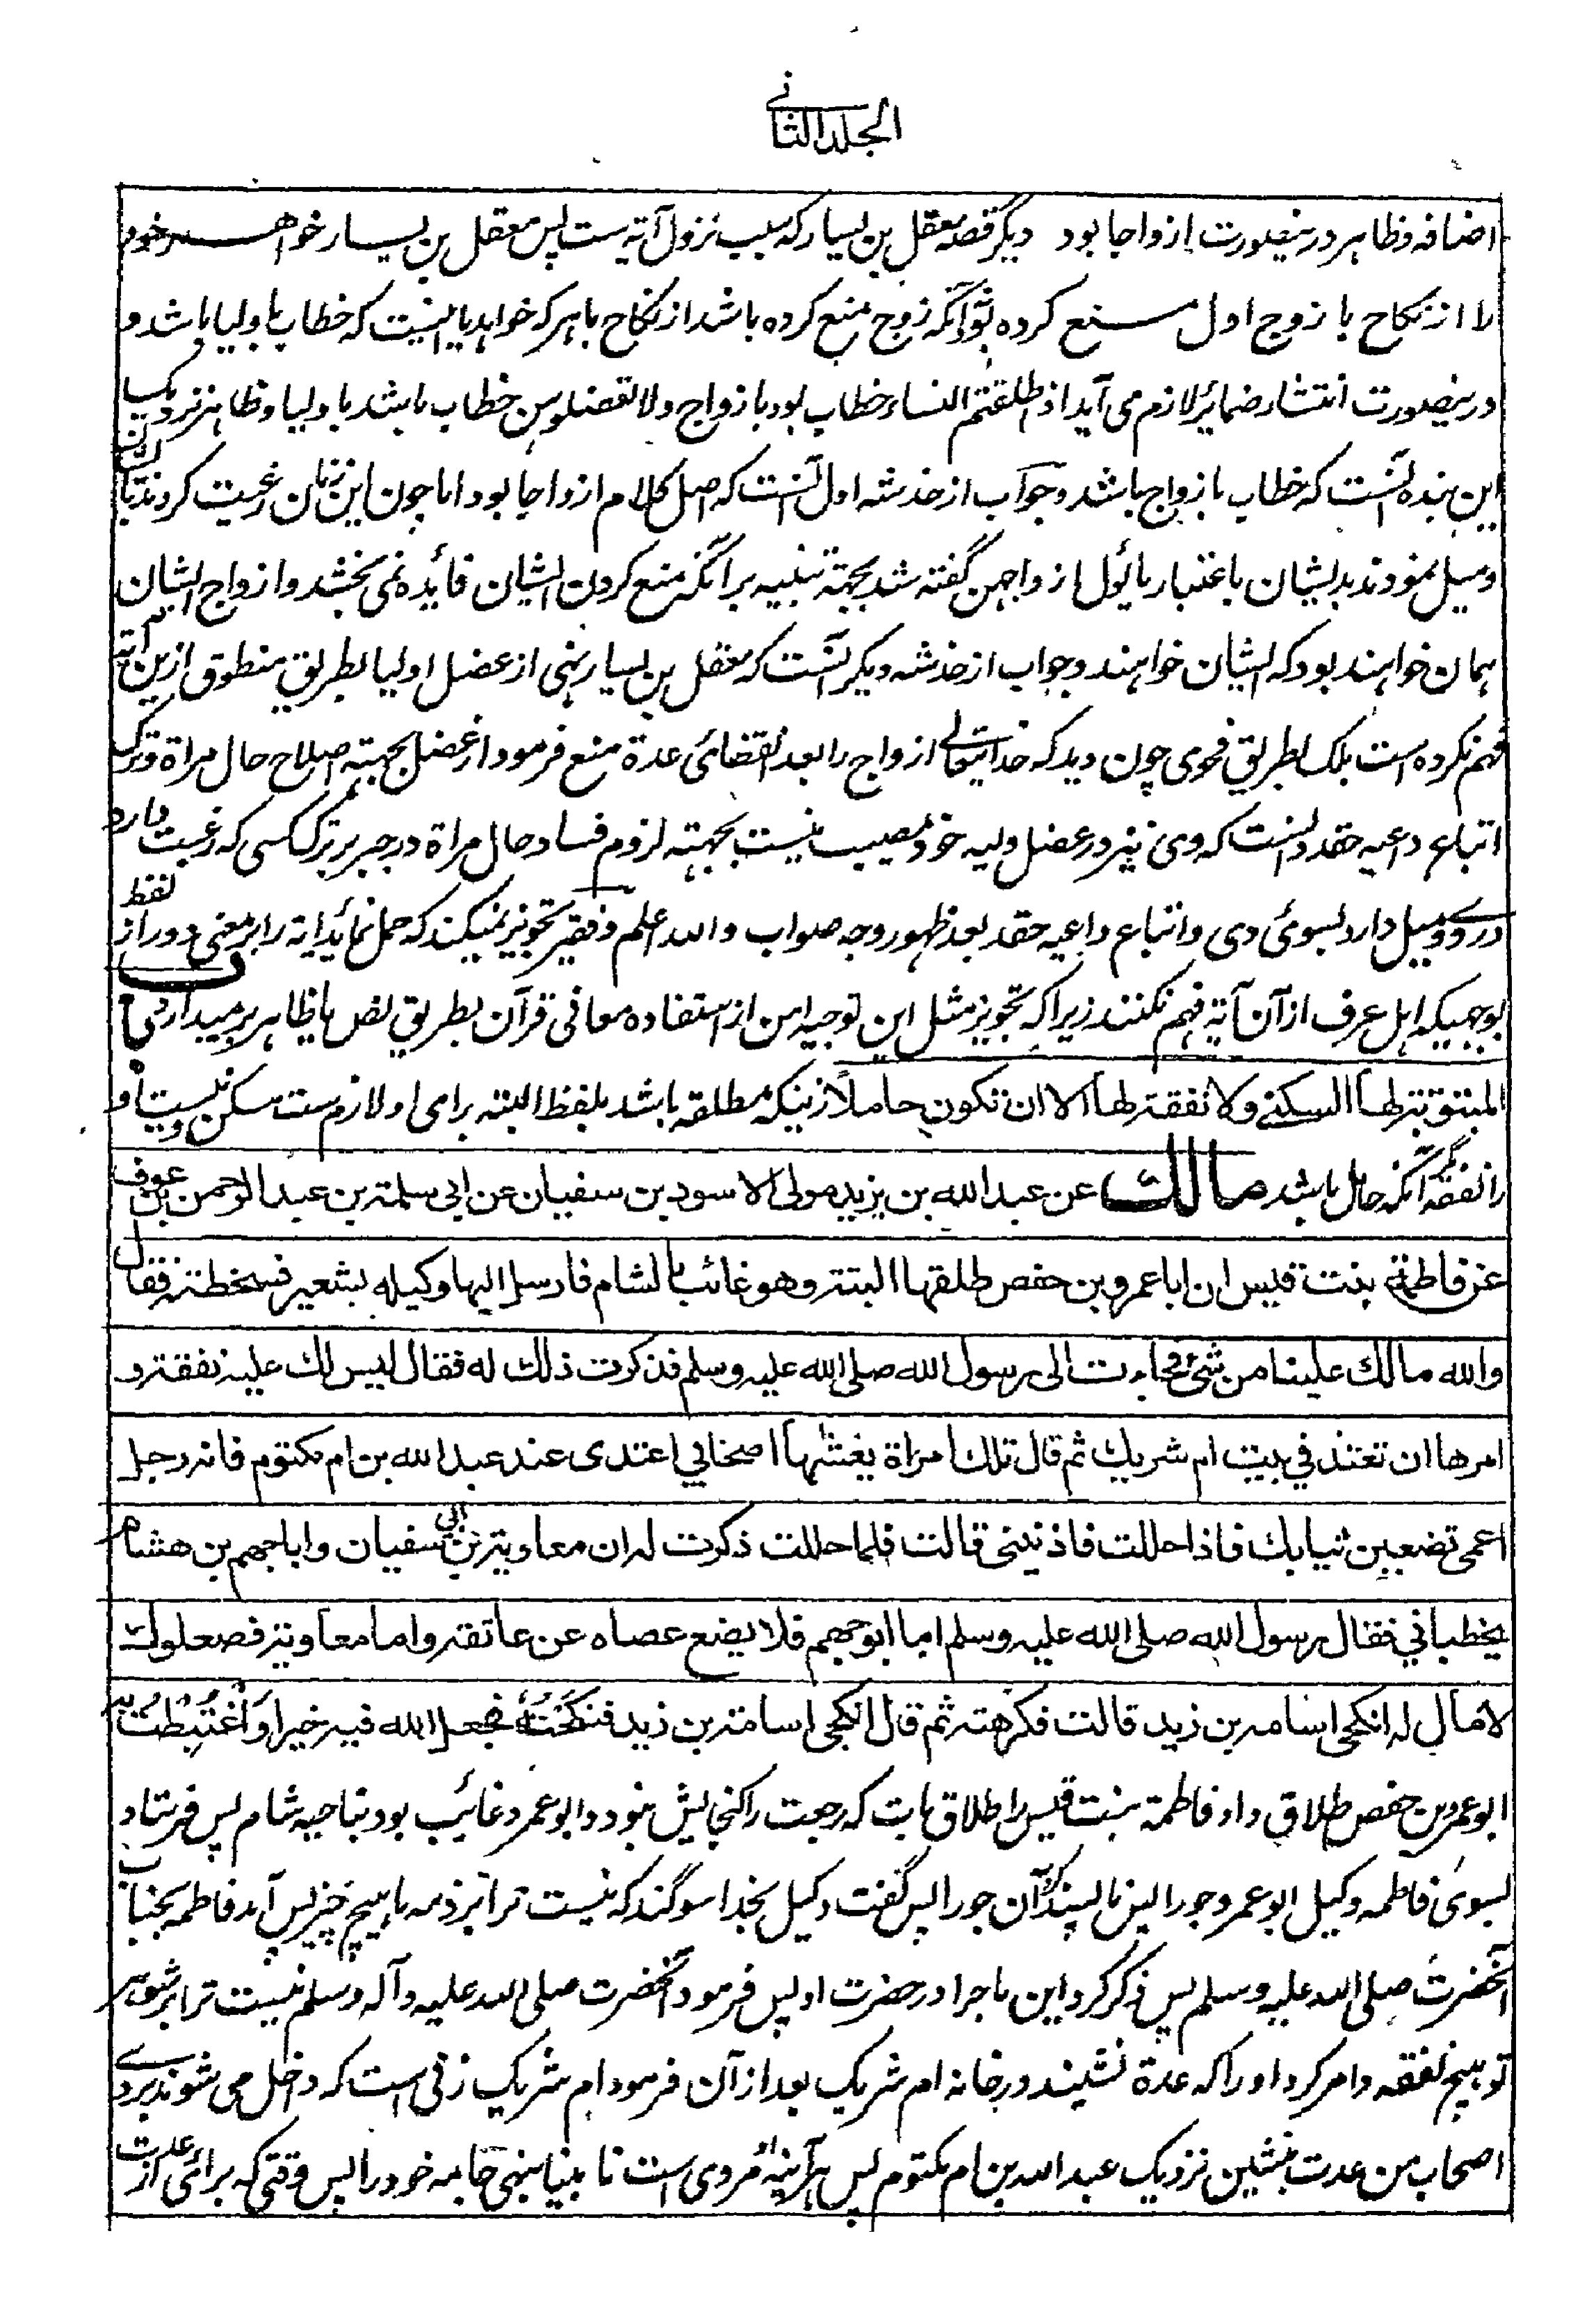 الجلد الثانی
اضافه و ظاهر درینصورت ازواجا بود دیگر قصه معقل بن یسار که سبب نزول آیة ست پس معقل بن یسار خواهر خود
را از نکاح با زوج اول منع کرده بود نه آنکه زوج منع کرده باشد از نکاح باهر که خواهد یا اینست که خطاب باولیا باشد و
درینصورت انتشار ضمایر لازم می آید اذا طلقتم النساء خطاب بود بازواج و لا تعضلوهن خطاب باشد باولیا و ظاهر نزدیک
این بنده آنست که خطاب بازواج باشد و جواب از خدشه اول آنست که اصل کلام ازواجا بود اما چون این زنان رغبت کردند بآن
و میل نمودند بدیشان باعتبار ما یؤل ازواجهن گفته شد بجهته تنبیه برآنکه منع کردن ایشان فائده نمی بخشد و ازواج ایشان
همان خواهند بود که ایشان خواهند و جواب از خدشه دیگر آنست که معقل بن یسار نهی از عضل اولیا بطریق منطوق ازین آیة
فهم نکرده است بلکه بطریق فحوی چون دید که خدایتعالی ازواج را بعد انقضائی عدة منع فرمود از عضل بجهته اصلاح حال مراة و ترک
اتباع داعیه حقد دانست که وی نیز در عضل ولیه خود مصیب نیست بجهته لزوم فساد حال مراة در جبر بر ترک کسی که رغبت دارد
در وی و میل دارد بسوئی وی و اتباع داعیه حقد بعد ظهور وجه صواب والله اعلم و فقیر تجویز نمیکند که حمل نمایند آیة را بر معنی دور از لفظ
بوجهیکه اهل عرف از آن آیة فهم نکنند زیرا که تجویز مثل این توجیه امن از استفاده معانی قرآن بطریق نص یا ظاهر برمیدارد
المبتوتة لها السکنی ولا نفقة لها الا ان تکون حاملا زنیکه مطلقه باشد بلفظ البته برای او لازم ست سکن و نیست او
را نفقه مگر آنکه حامل باشد مالك عن عبد الله بن یزید مولی الاسود بن سفیان عن ابی سلمة بن عبد الرحمن بن عوف
عن فاطمة بنت قیس ان ابا عمرو بن حفص طلقها البتة وهو غائب بالشام فارسل الیها وکیله بشعیر فسخطته فقال
والله مالك علینا من شئ فجاءت الی رسول الله صلی الله علیه وسلم فذکرت ذلك له فقال لیس لك علیه نفقة و
امرها ان تعتد فی بیت ام شریك ثم قال تلك امراة یغشٰها اصحابی اعتدی عند عبد الله بن ام مکتوم فانه رجل
اعمی تضعین ثیابك فاذا حللت فاذنینی قالت فلما حللت ذکرت له ان معاویة بن ابی سفیان وابا جهم بن هشام
یخطبانی فقال رسول الله صلی الله علیه وسلم اما ابو جهم فلا یضع عصاه عن عاتقه واما معاویة فصعلوك
لامال له انکحی اسامه بن زید قالت فکرهته ثم قال انکحی اسامة بن زید فنکحته فجعل الله فیه خیرا واغتبطت به
ابو عمرو بن حفص طلاق داد فاطمة بنت قیس را طلاق بات که رجعت را گنجایش نبود و ابو عمرو غائب بود بناحیه شام پس فرستاد
بسوی فاطمه وکیل ابو عمرو جو را پس ناپسند کرد آن جو را پس گفت وکیل بخدا سوگند که نیست ترا بر ذمه ما هیچ چیز پس آمد فاطمه بجناب
آنحضرت صلی الله علیه وسلم پس ذکر کرد این ماجرا در حضرت او پس فرمود آنحضرت صلی الله علیه وآله وسلم نیست ترا بر شوهر
تو هیچ نفقه و امر کرد او را که عدة نشیند در خانه ام شریک بعد از آن فرمود ام شریک زنی است که داخل می شوند بروے
اصحاب من عدت بنشین نزدیک عبد الله بن ام مکتوم پس هرآینه او مردی است نابینا بنهی جامه خود را پس وقتی که برائی از عدت